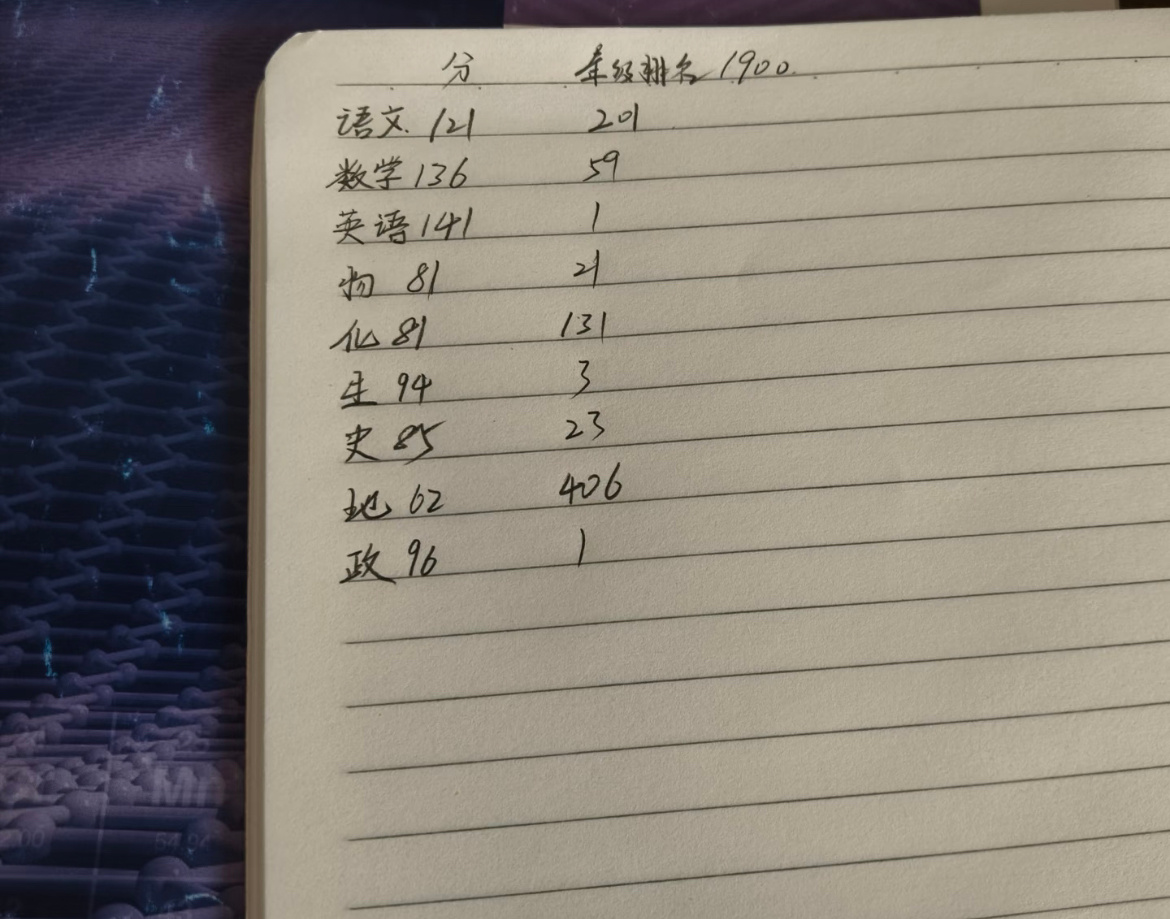 分 年级排名 1900.
语文. 121 201
数学 136 59
英语 141 1
物 81 21
化 81 131
生 94 3
史 85 23
地 62 406
政 96 1